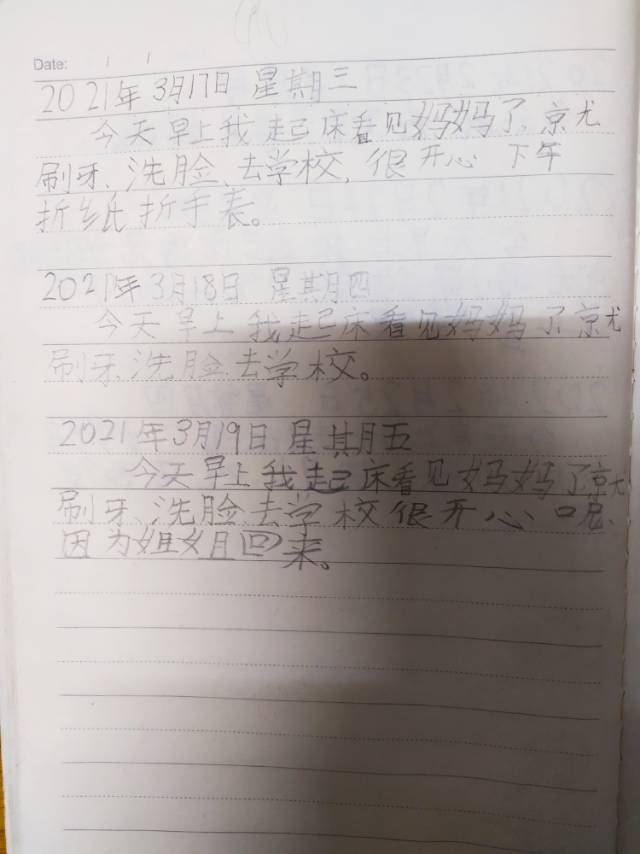 Date: / /
2021年3月17日 星期三
今天早上我起床看见妈妈了京尤
刷牙、洗脸、去学校,很开心 下午
折纸折手表。
2021年3月18日 星期四
今天早上我起床看见妈妈了京尤
刷牙、洗脸、去学校。
2021年3月19日 星期五
今天早上我起床看见妈妈了京尤
刷牙、洗脸、去学校很开心、口兄、
因为姐姐回来。